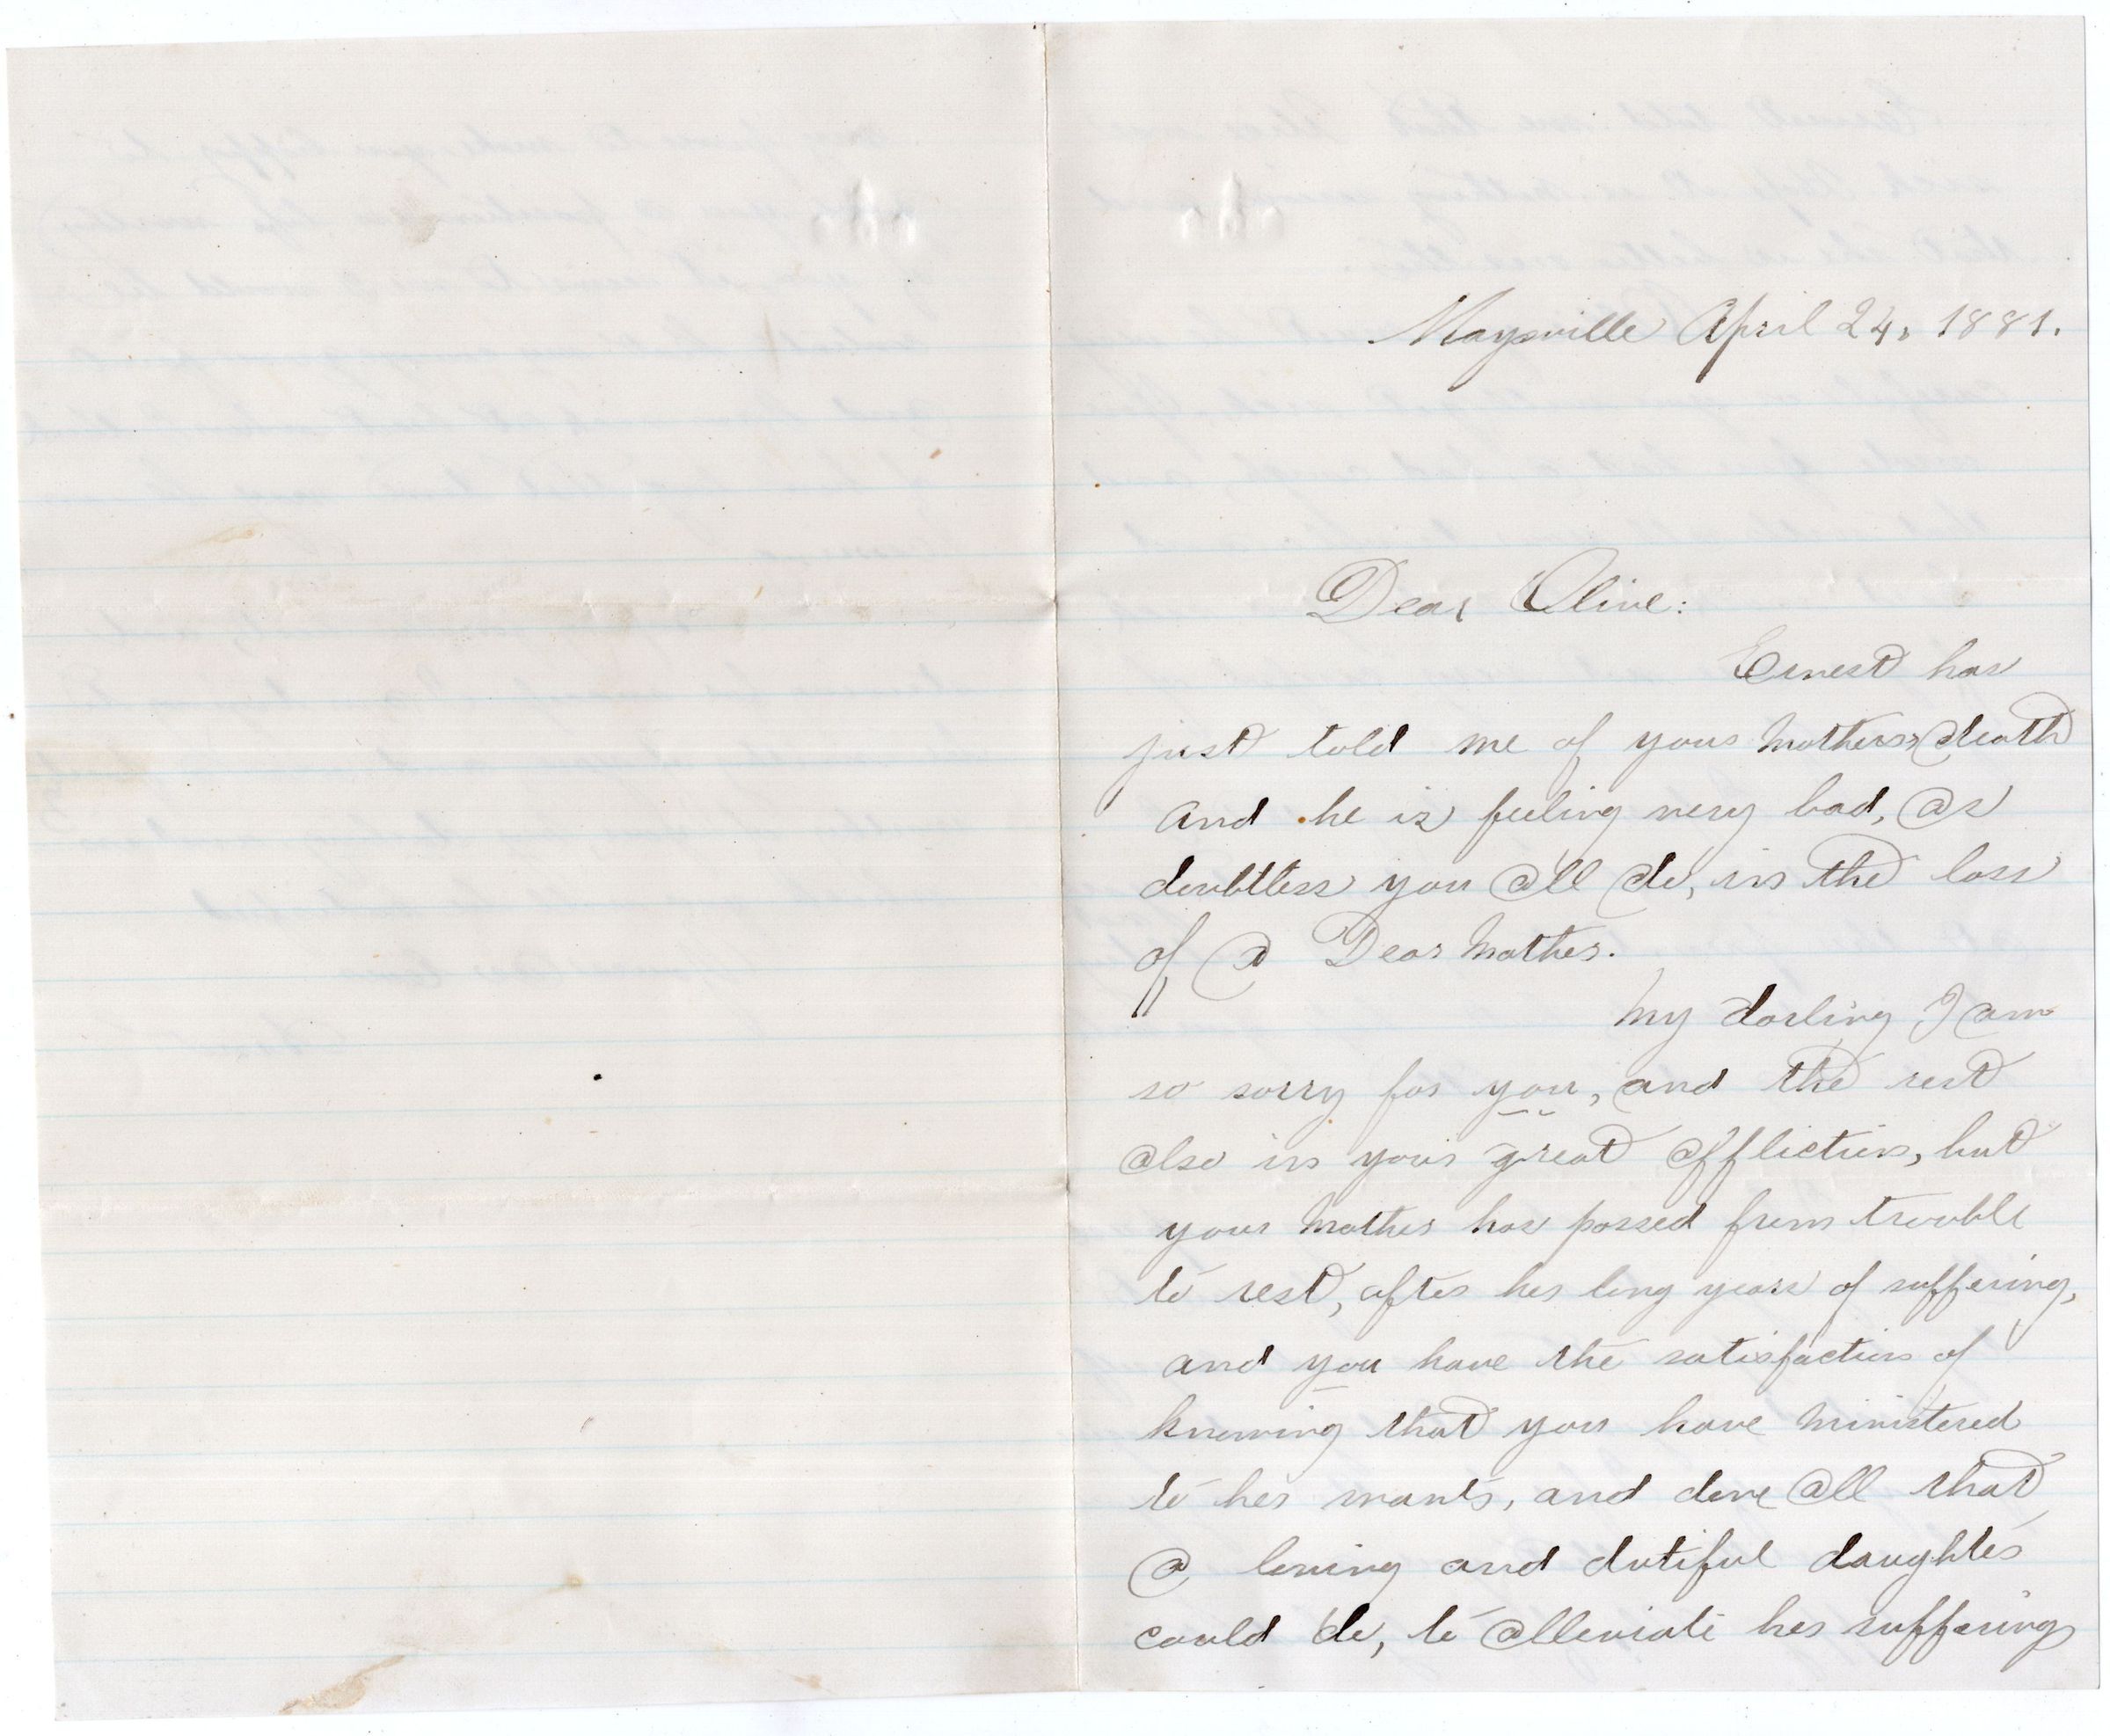 Maysville April 24, 1881.
Dear Olive:
Ernest has
just told me of your Mothers death
and he is feeling very bad, as
doubtless you all do, in the loss
of a Dear Mother.
My darling I am
so sorry for you, and the rest
also in your great affliction, but
your Mother has passed from trouble
to rest, after her long years of suffering,
and you have the satisfaction of
knowing that you have ministered
to her wants, and done all that
a loving and dutiful daughter
could do, to alleviate her suffering